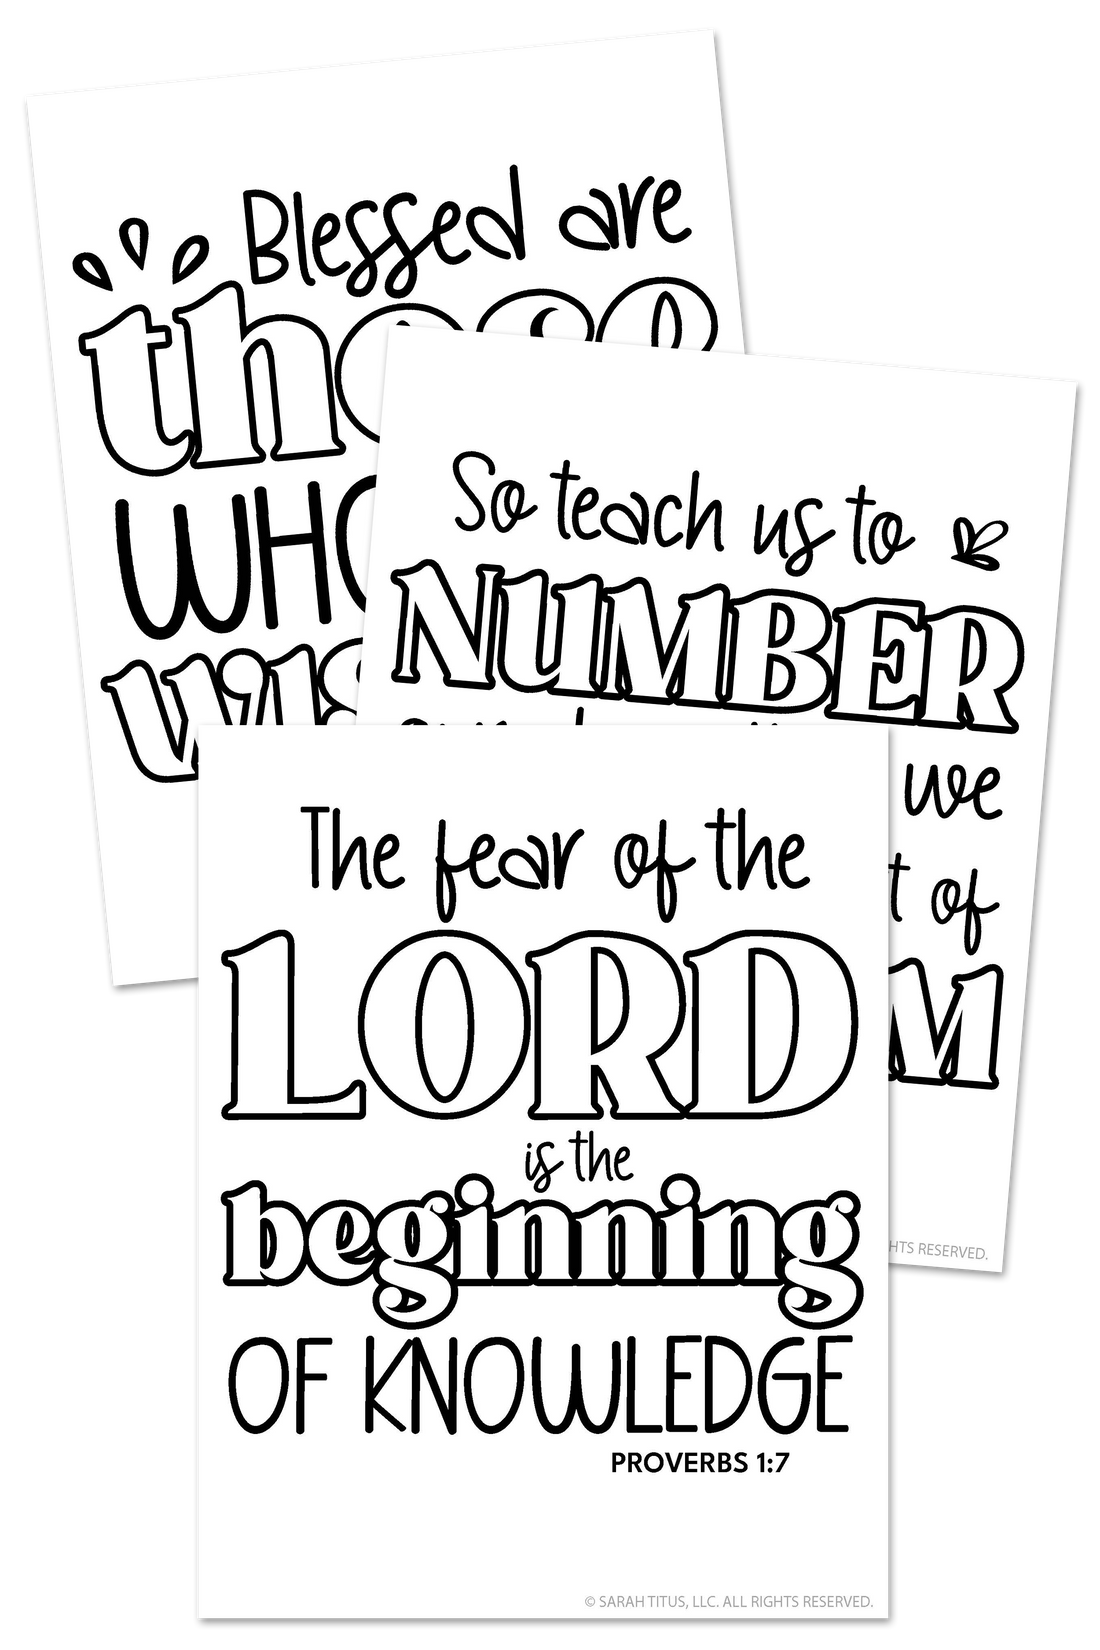 Blessed are
those
WHO
So teach us to
NUMBER
we
of
The fear of the
LORD
is the
beginning
OF KNOWLEDGE
PROVERBS 1:7
RESERVED.
© SARAH TITUS, LLC. ALL RIGHTS RESERVED.